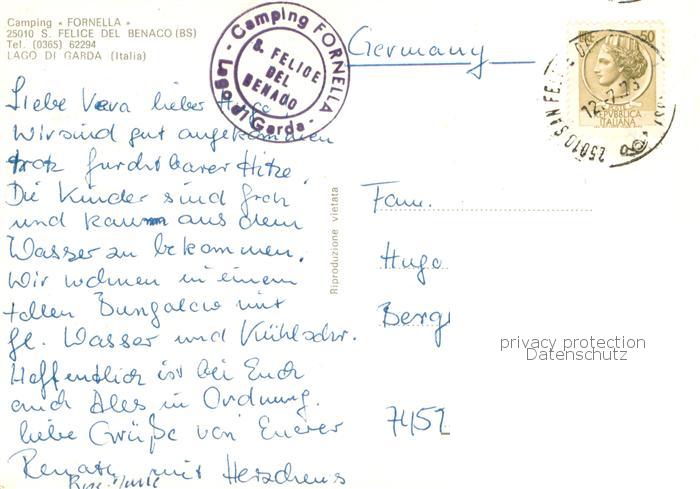 Camping « FORNELLA »
25010 S. FELICE DEL BENACO (BS)
Tel. (0365) 62294
LAGO DI GARDA (Italia)
Camping FORNELLA
S. FELICE
DEL
BENACO
Lago di Garda
Germany
50
POSTE
REPUBBLICA
ITALIANA
25010 SAN FELICE
12-7-73
Liebe Vera lieber
Wir sind gut angekommen
trotz furchtbarer Hitze.
Die Kinder sind froh
und kaum aus dem
Wasser zu bekommen.
Wir wohnen in einem
tollen Bungalow mit
fl. Wasser und Kühlschr.
Hoffentlich ist bei Euch
auch Alles in Ordnung.
liebe Grüße von Euerer
Renate mit Herschens
Riproduzione vietata
Fam.
Hugo
Berg
7451
privacy protection
Datenschutz